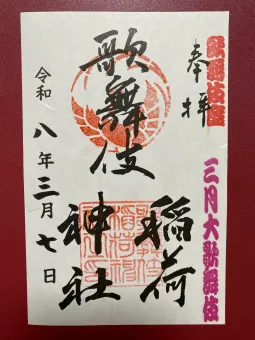 歌舞伎座
三月大歌舞伎
奉拝
歌舞伎
稲荷
神社
令和八年三月七日